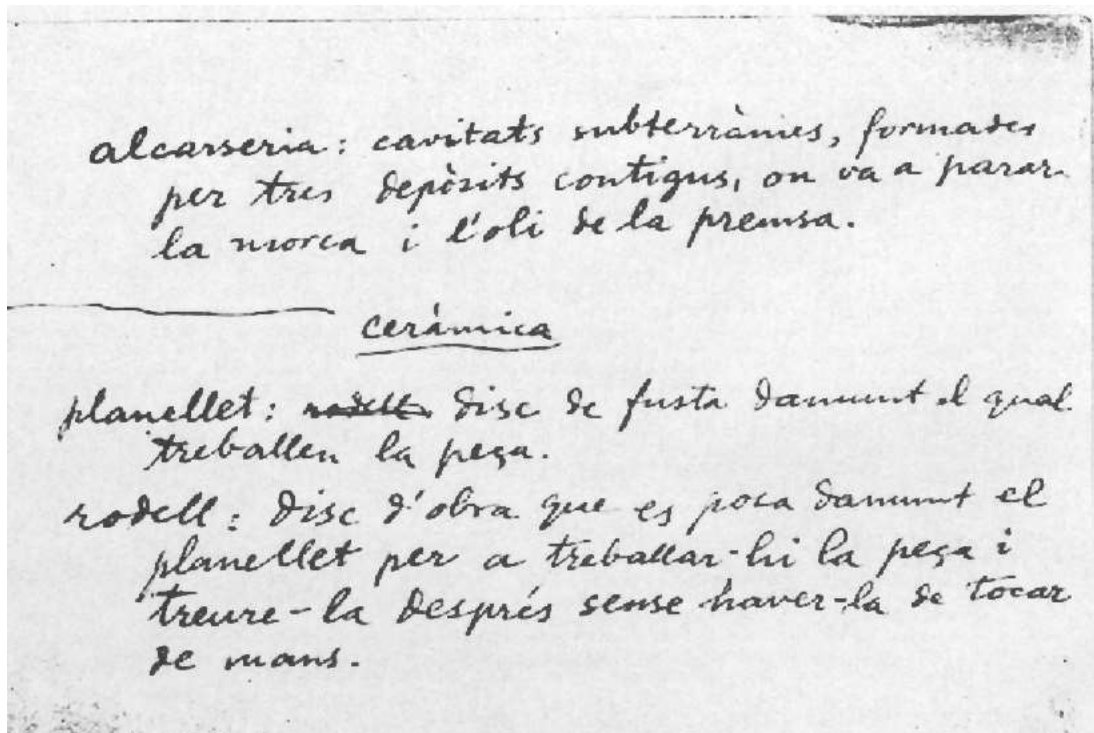 alcarseria: cavitats subterrànies, formades
per tres depòsits contigus, on va a parar
la morca i l'oli de la premsa.
ceràmica
planellet: rodell disc de fusta damunt el qual
treballen la peça.
rodell: disc d'obra que es posa damunt el
planellet per a treballar-hi la peça i
treure-la després sense haver-la de tocar
de mans.